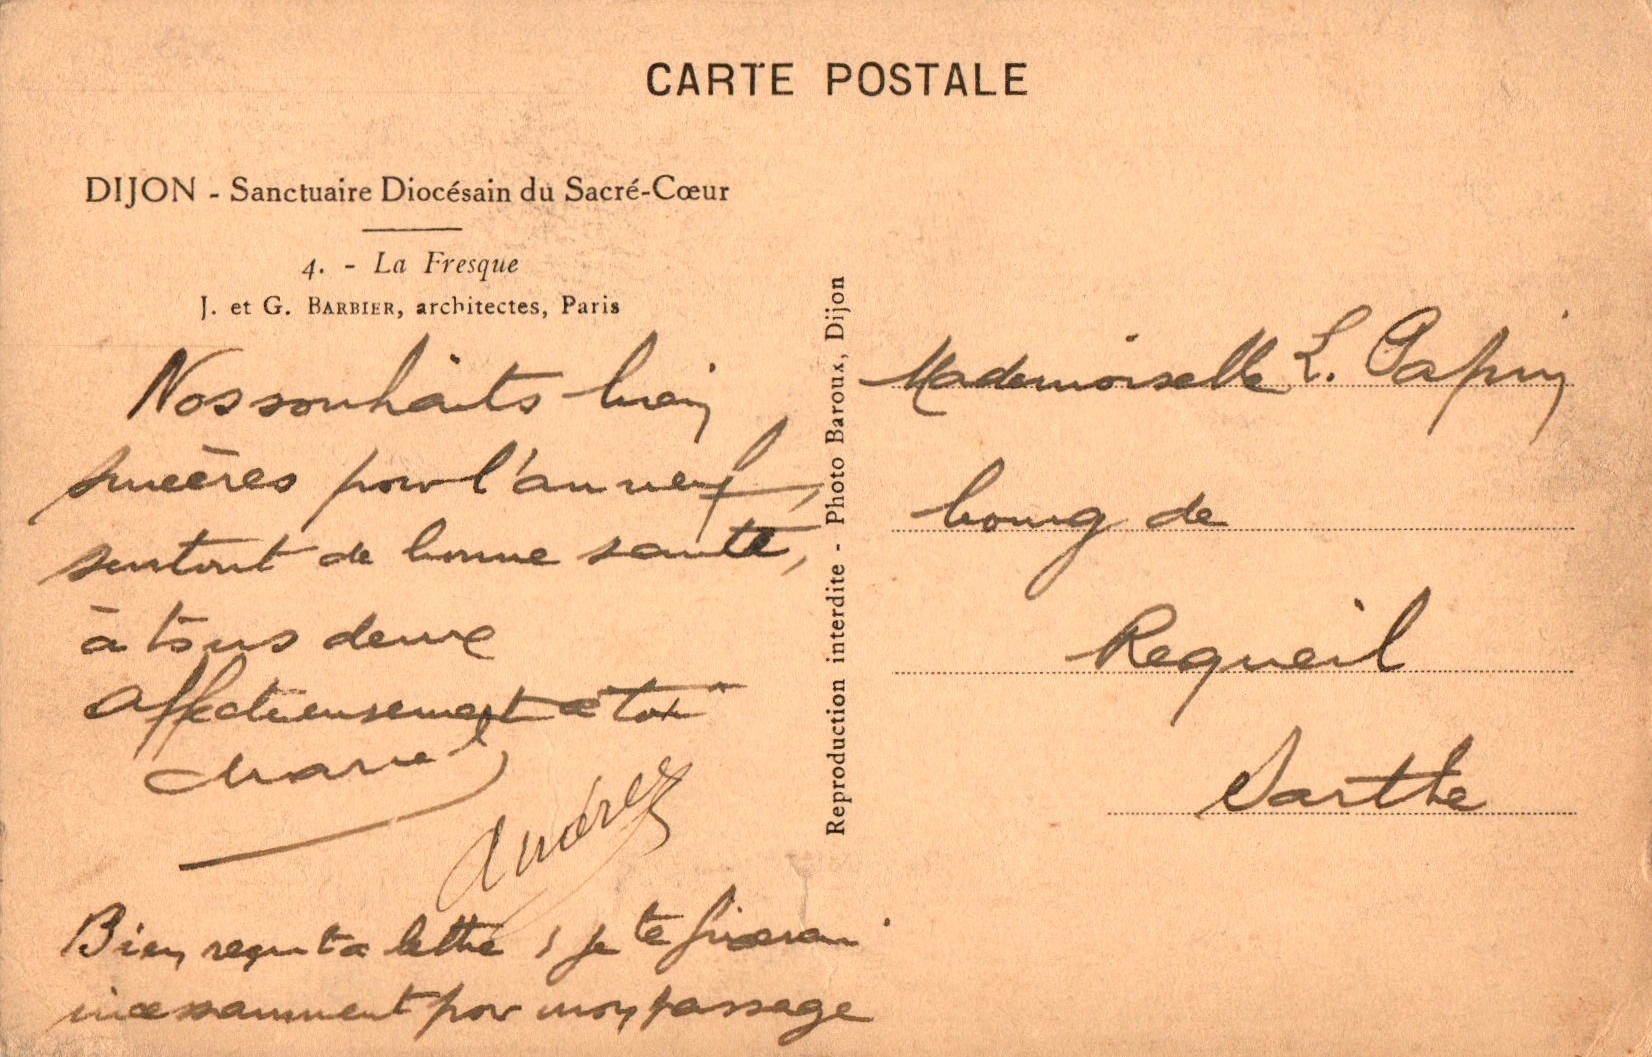 CARTE POSTALE
DIJON - Sanctuaire Diocésain du Sacré-Cœur
4. - La Fresque
J. et G. BARBIER, architectes, Paris
Nos souhaits bien
sincères pour l'an neuf,
surtout de bonne santé,
à tous deux
affectueusement à toi
Andrée
Bien reçu ta lettre, je te fixerai
incessamment pour mon passage
Reproduction interdite - Photo Baroux, Dijon
Mademoiselle L. Papin
bourg de
Requeil
Sarthe